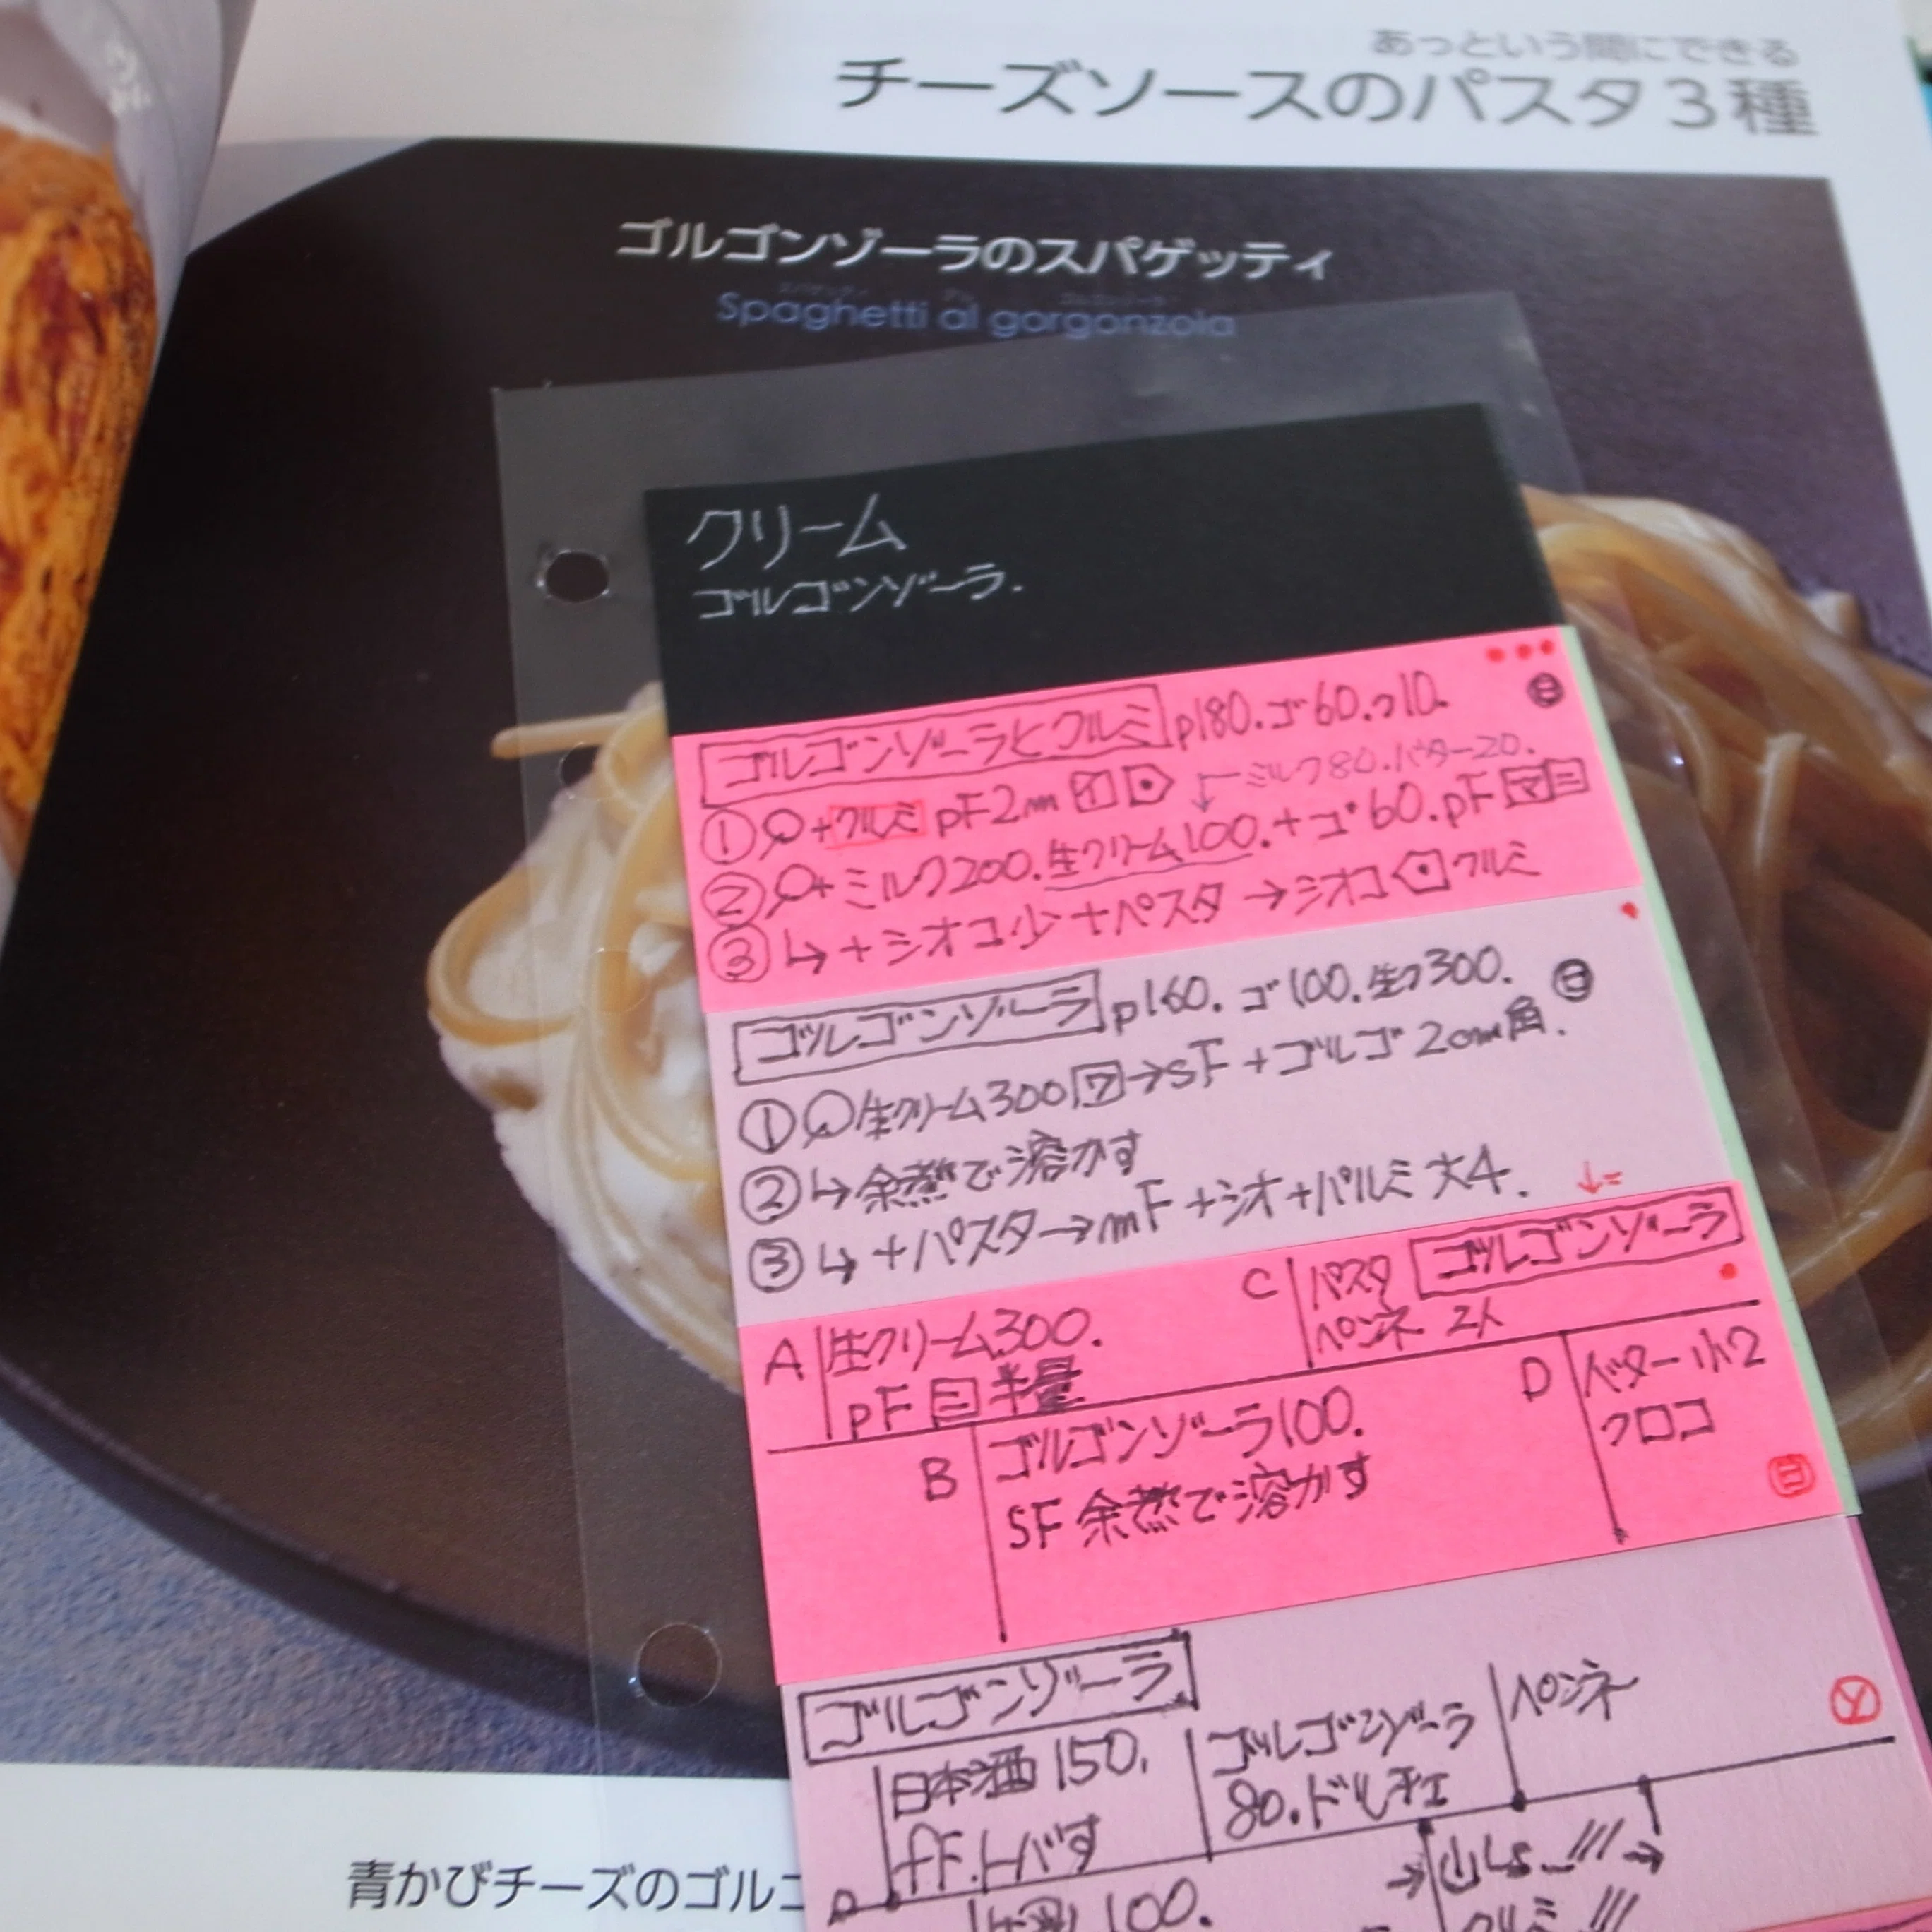 あっという間にできる
チーズソースのパスタ3種
ゴルゴンゾーラのスパゲッティ
Spaghetti al gorgonzola
クリーム
ゴルゴンゾーラ.
ゴルゴンゾーラとクルミ p180.ゴ60.ク10.
ミルク80.バター20.
① +クルミ pF2m
② +ミルク200.生クリーム100.+ゴ60.pF
③ ↳+シオコ少+パスタ→シオコ クルミ
ゴルゴンゾーラ p160.ゴ100.生ク300.
① 生クリーム300 ワ→sF+ゴルゴ2cm角.
② ↳余熱で溶かす
③ ↳+パスタ→mF+シオ+パルミ大4.
↓=
C パスタ ゴルゴンゾーラ
ペンネ 2人
A 生クリーム300.
pF ニ 半量
B ゴルゴンゾーラ100.
SF 余熱で溶かす
D バター小2
クロコ
ゴルゴンゾーラ
日本酒150.
fF.トバす
ゴルゴンゾーラ
80.ドルチェ
ペンネ
100.
青かびチーズのゴルゴ